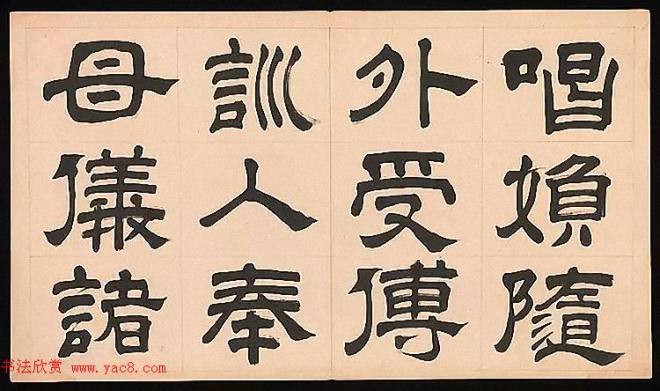 唱媍隨
外受傅
訓入奉
母儀諸
书法欣赏 www.yac8.com